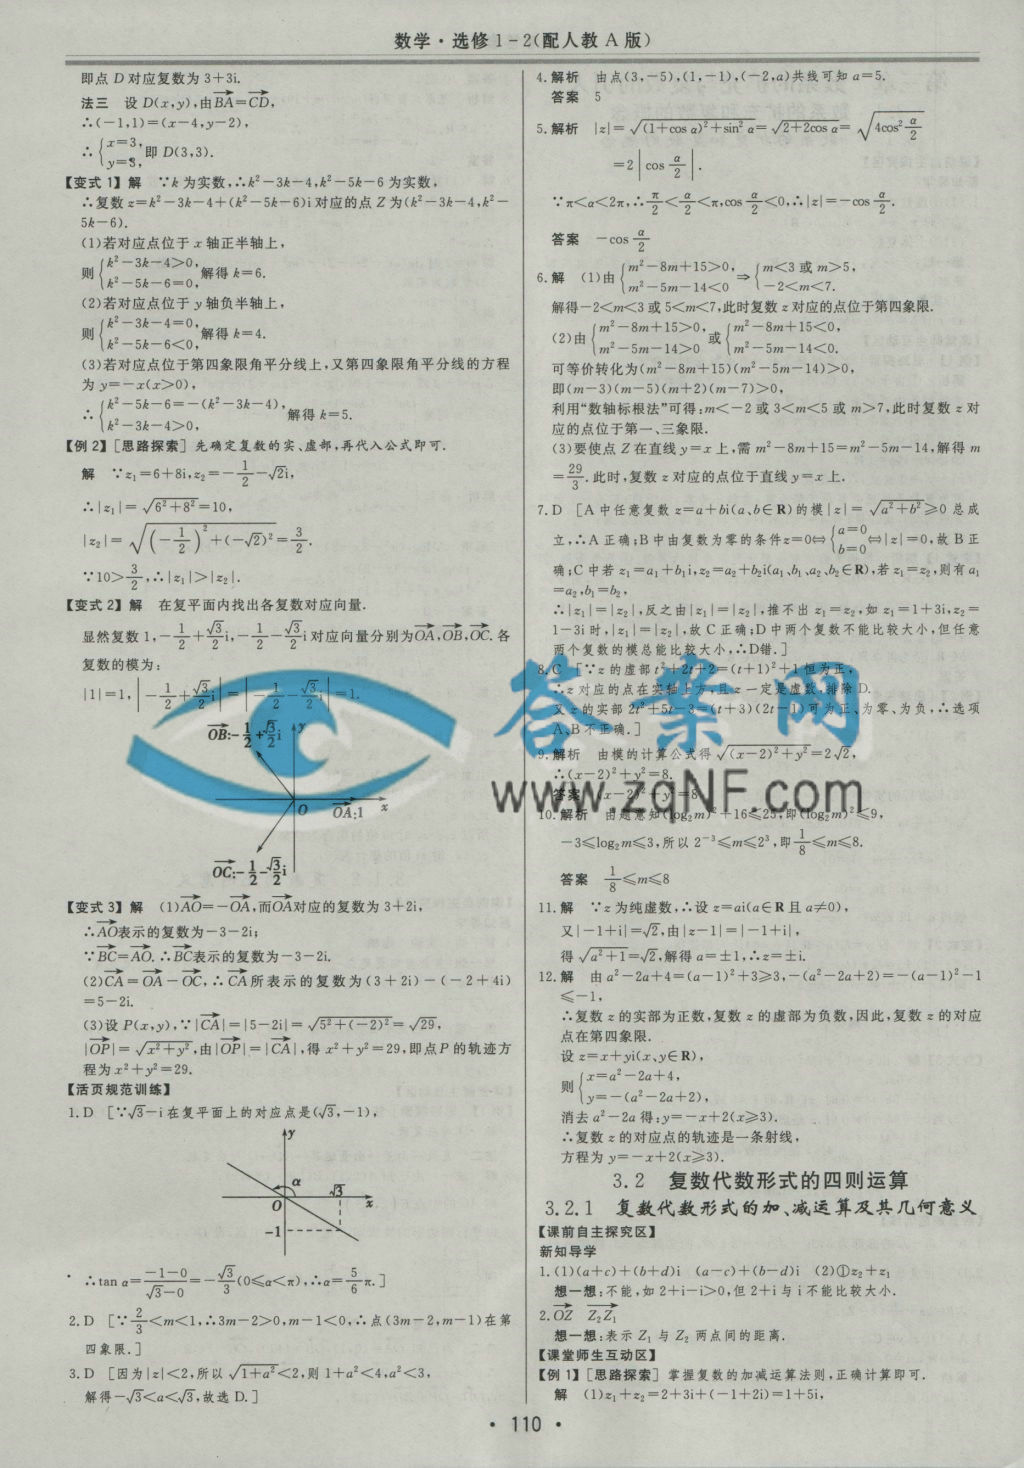 数学·选修1-2(配人教A版)
即点D对应复数为3+3i.
法三 设D(x,y),由BA=CD,
∴(-1,1)=(x-4,y-2),
∴{x=3, y=3, 即D(3,3).
【变式1】解 ∵k为实数,∴k²-3k-4,k²-5k-6为实数,
∴复数z=k²-3k-4+(k²-5k-6)i对应的点Z为(k²-3k-4,k²-
5k-6).
(1)若对应点位于x轴正半轴上,
则{k²-3k-4>0, k²-5k-6=0, 解得k=6.
(2)若对应点位于y轴负半轴上,
则{k²-3k-4=0, k²-5k-6<0, 解得k=4.
(3)若对应点位于第四象限角平分线上,又第四象限角平分线的方程
为y=-x(x>0),
∴{k²-5k-6=-(k²-3k-4), k²-3k-4>0, 解得k=5.
【例2】[思路探索] 先确定复数的实、虚部,再代入公式即可.
解 ∵z₁=6+8i,z₂=-1/2-√2i,
∴|z₁|=√(6²+8²)=10,
|z₂|=√((-1/2)²+(-√2)²)=3/2.
∵10>3/2,∴|z₁|>|z₂|.
【变式2】解 在复平面内找出各复数对应向量.
显然复数1,-1/2+√3/2i,-1/2-√3/2i对应向量分别为OA,OB,OC.各
复数的模为:
|1|=1,|-1/2+√3/2i|=|-1/2-√3/2i|=1.
OB:-1/2+√3/2i y
O OA:1 x
OC:-1/2-√3/2i
【变式3】解 (1)AO=-OA,而OA对应的复数为3+2i,
∴AO表示的复数为-3-2i;
∵BC=AO.∴BC表示的复数为-3-2i.
(2)CA=OA-OC,∴CA所表示的复数为(3+2i)-(-2+4i)
=5-2i.
(3)设P(x,y),∵|CA|=|5-2i|=√(5²+(-2)²)=√29,
|OP|=√(x²+y²),由|OP|=|CA|,得x²+y²=29,即点P的轨迹方
程为x²+y²=29.
【活页规范训练】
1.D [∵√3-i在复平面上的对应点是(√3,-1),
y
α √3
O x
-1
∴tan α=(-1-0)/(√3-0)=-√3/3(0≤α<π),∴α=5/6π.]
2.D [∵2/3<m<1,∴3m-2>0,m-1<0,∴点(3m-2,m-1)在第
四象限.]
3.D [因为|z|<2,所以√(1+a²)<2,则1+a²<4,a²<3,
解得-√3<a<√3,故选D.]
4.解析 由点(3,-5),(1,-1),(-2,a)共线可知a=5.
答案 5
5.解析 |z|=√((1+cos α)²+sin²α)=√(2+2cos α)=√(4cos²α/2)
=2|cos α/2|.
∵π<α<2π,∴π/2<α/2<π,cos α/2<0,∴|z|=-cos α/2.
答案 -cos α/2
6.解 (1)由{m²-8m+15>0, m²-5m-14<0 ⇒{m<3或m>5, -2<m<7.
解得-2<m<3或5<m<7,此时复数z对应的点位于第四象限.
(2)由{m²-8m+15>0, m²-5m-14>0 或{m²-8m+15<0, m²-5m-14<0.
可等价转化为(m²-8m+15)(m²-5m-14)>0,
即(m-3)(m-5)(m+2)(m-7)>0,
利用“数轴标根法”可得:m<-2或3<m<5或m>7,此时复数z对
应的点位于第一、三象限.
(3)要使点Z在直线y=x上,需m²-8m+15=m²-5m-14,解得m
=29/3.此时,复数z对应的点位于直线y=x上.
7.D [A中任意复数z=a+bi(a、b∈R)的模|z|=√(a²+b²)≥0总成
立,∴A正确;B中由复数为零的条件z=0⇔{a=0 b=0⇔|z|=0,故B正
确;C中若z₁=a₁+b₁i,z₂=a₂+b₂i(a₁、b₁、a₂、b₂∈R),若z₁=z₂,则有a₁
=a₂,b₁=b₂,
∴|z₁|=|z₂|,反之由|z₁|=|z₂|,推不出z₁=z₂,如z₁=1+3i,z₂=
1-3i时,|z₁|=|z₂|,故C正确;D中两个复数不能比较大小,但任意
两个复数的模总能比较大小,∴D错.]
8.C [∵z的虚部t²+2t+2=(t+1)²+1恒为正,
∴z对应的点在实轴上方,且z一定是虚数,排除D.
又z的实部2t²+5t-3=(t+3)(2t-1)可为正、为零、为负,∴选项
A、B不正确.]
9.解析 由模的计算公式得√((x-2)²+y²)=2√2,
∴(x-2)²+y²=8.
答案 (x-2)²+y²=8
10.解析 由题意知(log₂m)²+16≤25,即(log₂m)²≤9,
-3≤log₂m≤3,所以2⁻³≤m≤2³,即1/8≤m≤8.
答案 1/8≤m≤8
11.解 ∵z为纯虚数,∴设z=ai(a∈R且a≠0),
又|-1+i|=√2,由|z-1|=|-1+i|,
得√(a²+1)=√2,解得a=±1,∴z=±i.
12.解 由a²-2a+4=(a-1)²+3≥3,-(a²-2a+2)=-(a-1)²-1
≤-1,
∴复数z的实部为正数,复数z的虚部为负数,因此,复数z的对应
点在第四象限.
设z=x+yi(x、y∈R),
则{x=a²-2a+4, y=-(a²-2a+2),
消去a²-2a得:y=-x+2(x≥3).
∴复数z的对应点的轨迹是一条射线,
方程为y=-x+2(x≥3).
3.2 复数代数形式的四则运算
3.2.1 复数代数形式的加、减运算及其几何意义
【课前自主探究区】
新知导学
1.(1)(a+c)+(b+d)i (a-c)+(b-d)i (2)①z₂+z₁
想一想:不能,如2+i-i>0,但2+i与i不能比较大小.
2.OZ Z₂Z₁
想一想:表示Z₁与Z₂两点间的距离.
【课堂师生互动区】
【例1】[思路探索] 掌握复数的加减运算法则,正确计算即可.
解 (1)z₁+z₂=2+3i+(-1+2i)=1+5i,
答案网
www.zqNF.com
·110·